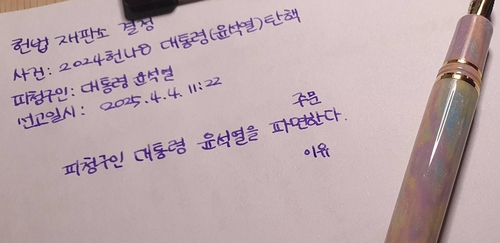 헌법 재판소 결정
사건: 2024헌나8 대통령(윤석열)탄핵
피청구인: 대통령 윤석열
선고일시: 2025.4.4. 11:22
주문
피청구인 대통령 윤석열을 파면한다.
이유